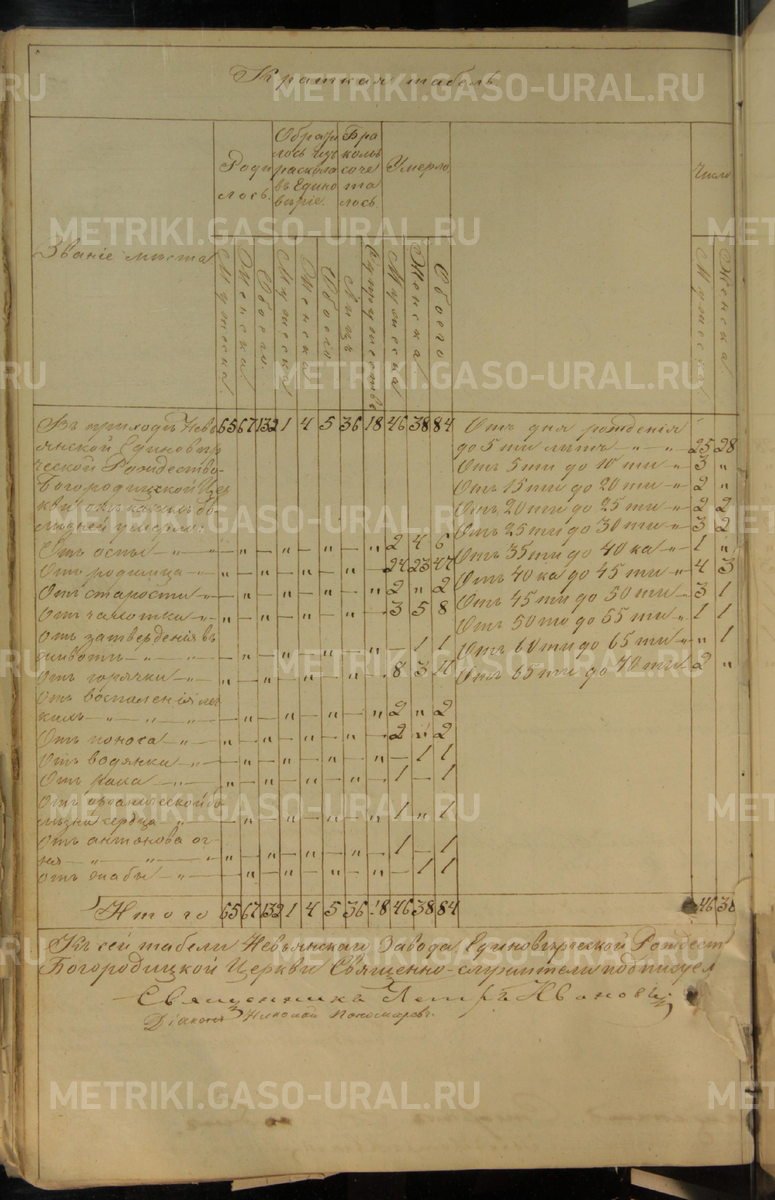 Краткая табель
Званіе мѣста
Роди
лось.
Обрати
лось изъ
раскола
въ Едино
вѣріе.
Бра
комъ
соче
та
лось
Умерло
Число
Мужеска
Женска
Обоего
Мужеска
Женска
Обоего
Лицъ
Супружествъ
Мужеска
Женска
Обоего
Мужеска
Женска
Въ приходѣ Невь 65 67 132 1 4 5 36 18 46 38 84
янской Единовѣр
ческой Рождество-
Богородицкой Цер
кви
Отъ оспы — „ — „ — „ — „ — „ 2 4 6
Отъ родимца „ — „ — „ — „ — „ — 24 23 47
Отъ старости „ — „ — „ — „ — „ 2 „ 2
Отъ чахотки „ — „ — „ — „ — „ — 3 5 8
Отъ затвердѣнія въ
животѣ — „ — „ — „ — „ — „ — 1 1
Отъ горячки — „ — „ — „ — „ — „ — 8 3 11
Отъ воспаленія лег
кихъ — „ — „ — „ — „ — „ 2 „ 2
Отъ поноса „ — „ — „ — „ — „ — 2 „ 2
Отъ водянки „ — „ — „ — „ — „ — 1 1
Отъ — „ — „ — „ — „ — 1 — 1
Отъ органической бо
лѣзни сердца „ — „ — „ — „ — „ 1 „ 1
Отъ антонова ог-
ня — „ — „ — „ — „ — „ 1 — 1
Отъ — „ — „ — „ — „ — „ 1 1
Итого 65 67 132 1 4 5 36 18 46 38 84
Отъ дня рожденія
до 5 ти лѣтъ — „ — „ 25 28
Отъ 5 ти до 10 ти — „ 3 „
Отъ 15 ти до 20 ти — „ 2 „
Отъ 20 ти до 25 ти — „ 2 2
Отъ 25 ти до 30 ти — „ 3 2
Отъ 35 ти до 40 ка „ 1 „
Отъ 40 ка до 45 ти „ 4 3
Отъ 45 ти до 50 ти „ 3 1
Отъ 50 ти до 55 ти „ 1 1
Отъ 60 ти до 65 ти „ „ 1
Отъ 65 ти до 70 ти 2 „
46 38
Къ сей табели Невьянскаго Завода Единовѣрческой Рождест
Богородицкой Церкви Священно-служители подписуем
Священникъ Петръ Ивановъ
Діаконъ Николай Пономаревъ
METRIKI.GASO-URAL.RU